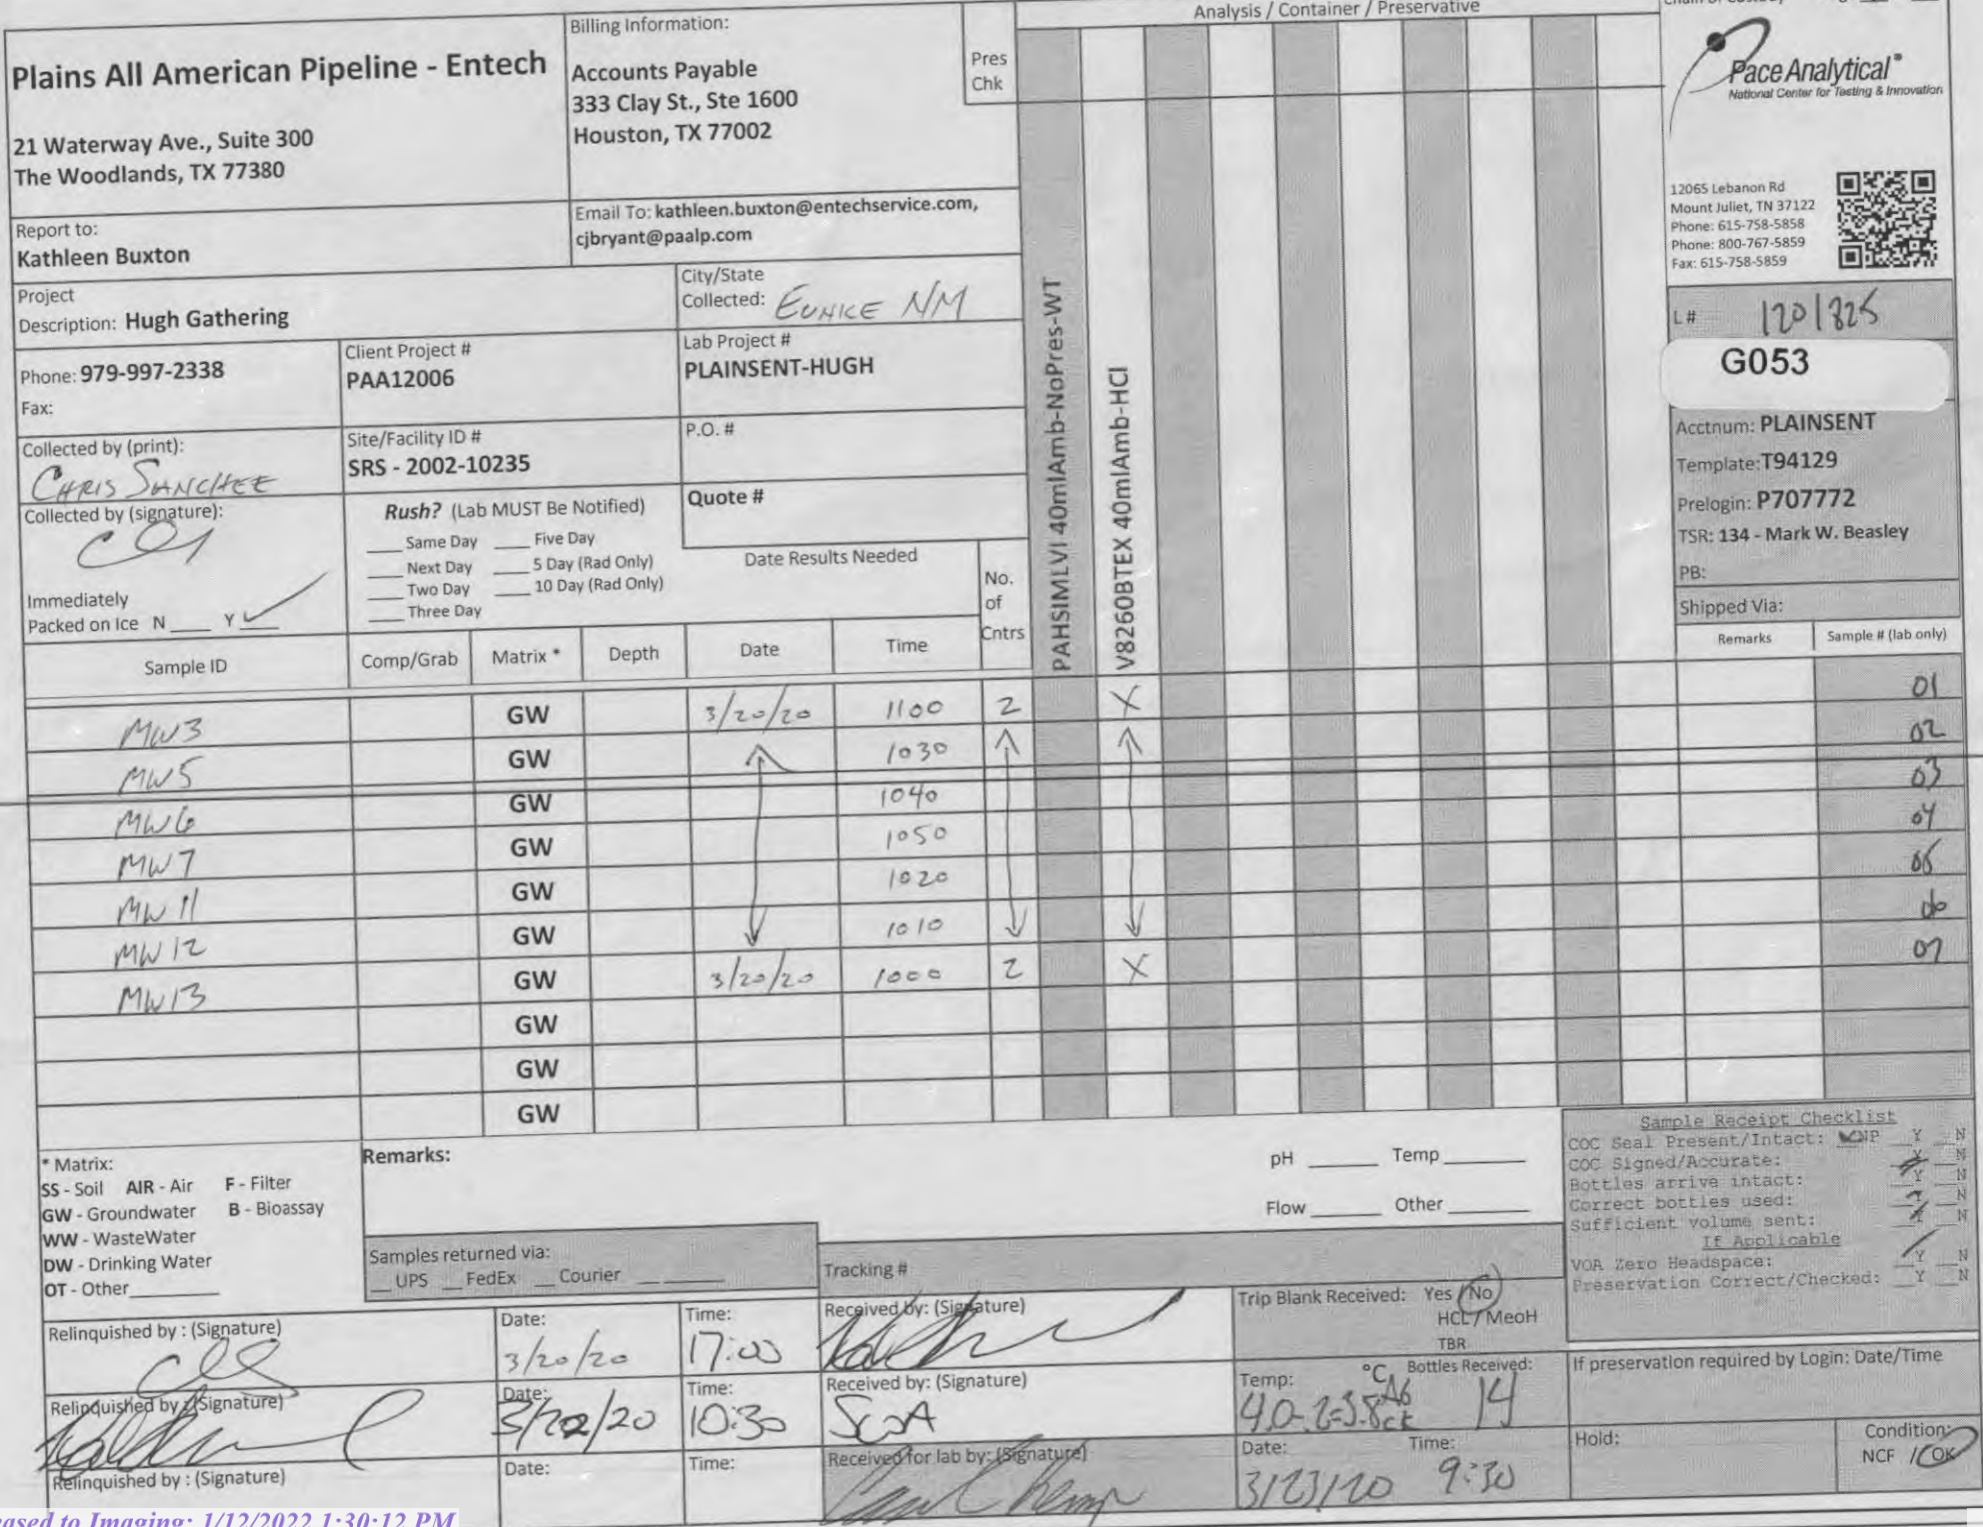 Analysis / Container / Preservative
Plains All American Pipeline - Entech
21 Waterway Ave., Suite 300
The Woodlands, TX 77380
Billing Information:
Accounts Payable
333 Clay St., Ste 1600
Houston, TX 77002
Pres
Chk
Pace Analytical®
National Center for Testing & Innovation
12065 Lebanon Rd
Mount Juliet, TN 37122
Phone: 615-758-5858
Phone: 800-767-5859
Fax: 615-758-5859
Report to:
Kathleen Buxton
Email To: kathleen.buxton@entechservice.com,
cjbryant@paalp.com
Project
Description: Hugh Gathering
City/State
Collected: EUNICE NM
Phone: 979-997-2338
Fax:
Client Project #
PAA12006
Lab Project #
PLAINSENT-HUGH
Collected by (print):
CHRIS SANCHEZ
Site/Facility ID #
SRS - 2002-10235
P.O. #
Collected by (signature):
Immediately
Packed on Ice N ___ Y ✓
Rush? (Lab MUST Be Notified)
___ Same Day ___ Five Day
___ Next Day ___ 5 Day (Rad Only)
___ Two Day ___ 10 Day (Rad Only)
___ Three Day
Quote #
Date Results Needed
No.
of
Cntrs
PAHSIMLVI 40mlAmb-NoPres-WT
V8260BTEX 40mlAmb-HCl
L # 1201825
G053
Acctnum: PLAINSENT
Template:T94129
Prelogin: P707772
TSR: 134 - Mark W. Beasley
PB:
Shipped Via:
Sample ID Comp/Grab Matrix * Depth Date Time Remarks Sample # (lab only)
MW3 GW 3/20/20 1100 2 X 01
MW5 GW 1030 02
MW6 GW 1040 03
MW7 GW 1050 04
MW11 GW 1020 05
MW12 GW 1010 06
MW13 GW 3/20/20 1000 2 X 07
GW
GW
GW
* Matrix:
SS - Soil AIR - Air F - Filter
GW - Groundwater B - Bioassay
WW - WasteWater
DW - Drinking Water
OT - Other
Remarks:
pH ______ Temp ______
Flow ______ Other ______
Samples returned via:
__ UPS __ FedEx __ Courier
Tracking #
Sample Receipt Checklist
COC Seal Present/Intact: NP Y N
COC Signed/Accurate: Y N
Bottles arrive intact: Y N
Correct bottles used: Y N
Sufficient volume sent: Y N
If Applicable
VOA Zero Headspace: Y N
Preservation Correct/Checked: Y N
Relinquished by : (Signature)
Date: 3/20/20
Time: 17:00
Received by: (Signature)
Trip Blank Received: Yes / No
HCL / MeoH
TBR
Relinquished by : (Signature)
Date: 3/22/20
Time: 10:30
Received by: (Signature)
Temp: °C
4.0-.2=3.8
Bottles Received:
14
If preservation required by Login: Date/Time
Relinquished by : (Signature)
Date:
Time:
Received for lab by: (Signature)
Date: 3/23/20
Time: 9:30
Hold:
Condition:
NCF / OK
ased to Imaging: 1/12/2022 1:30:12 PM